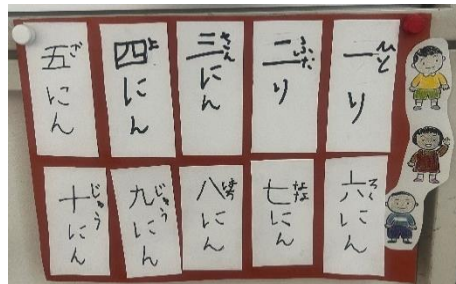 一り
ひと
二り
ふた
三にん
さん
四にん
よ
五にん
ご
六にん
ろく
七にん
なな
八にん
はち
九にん
十にん
じゅう